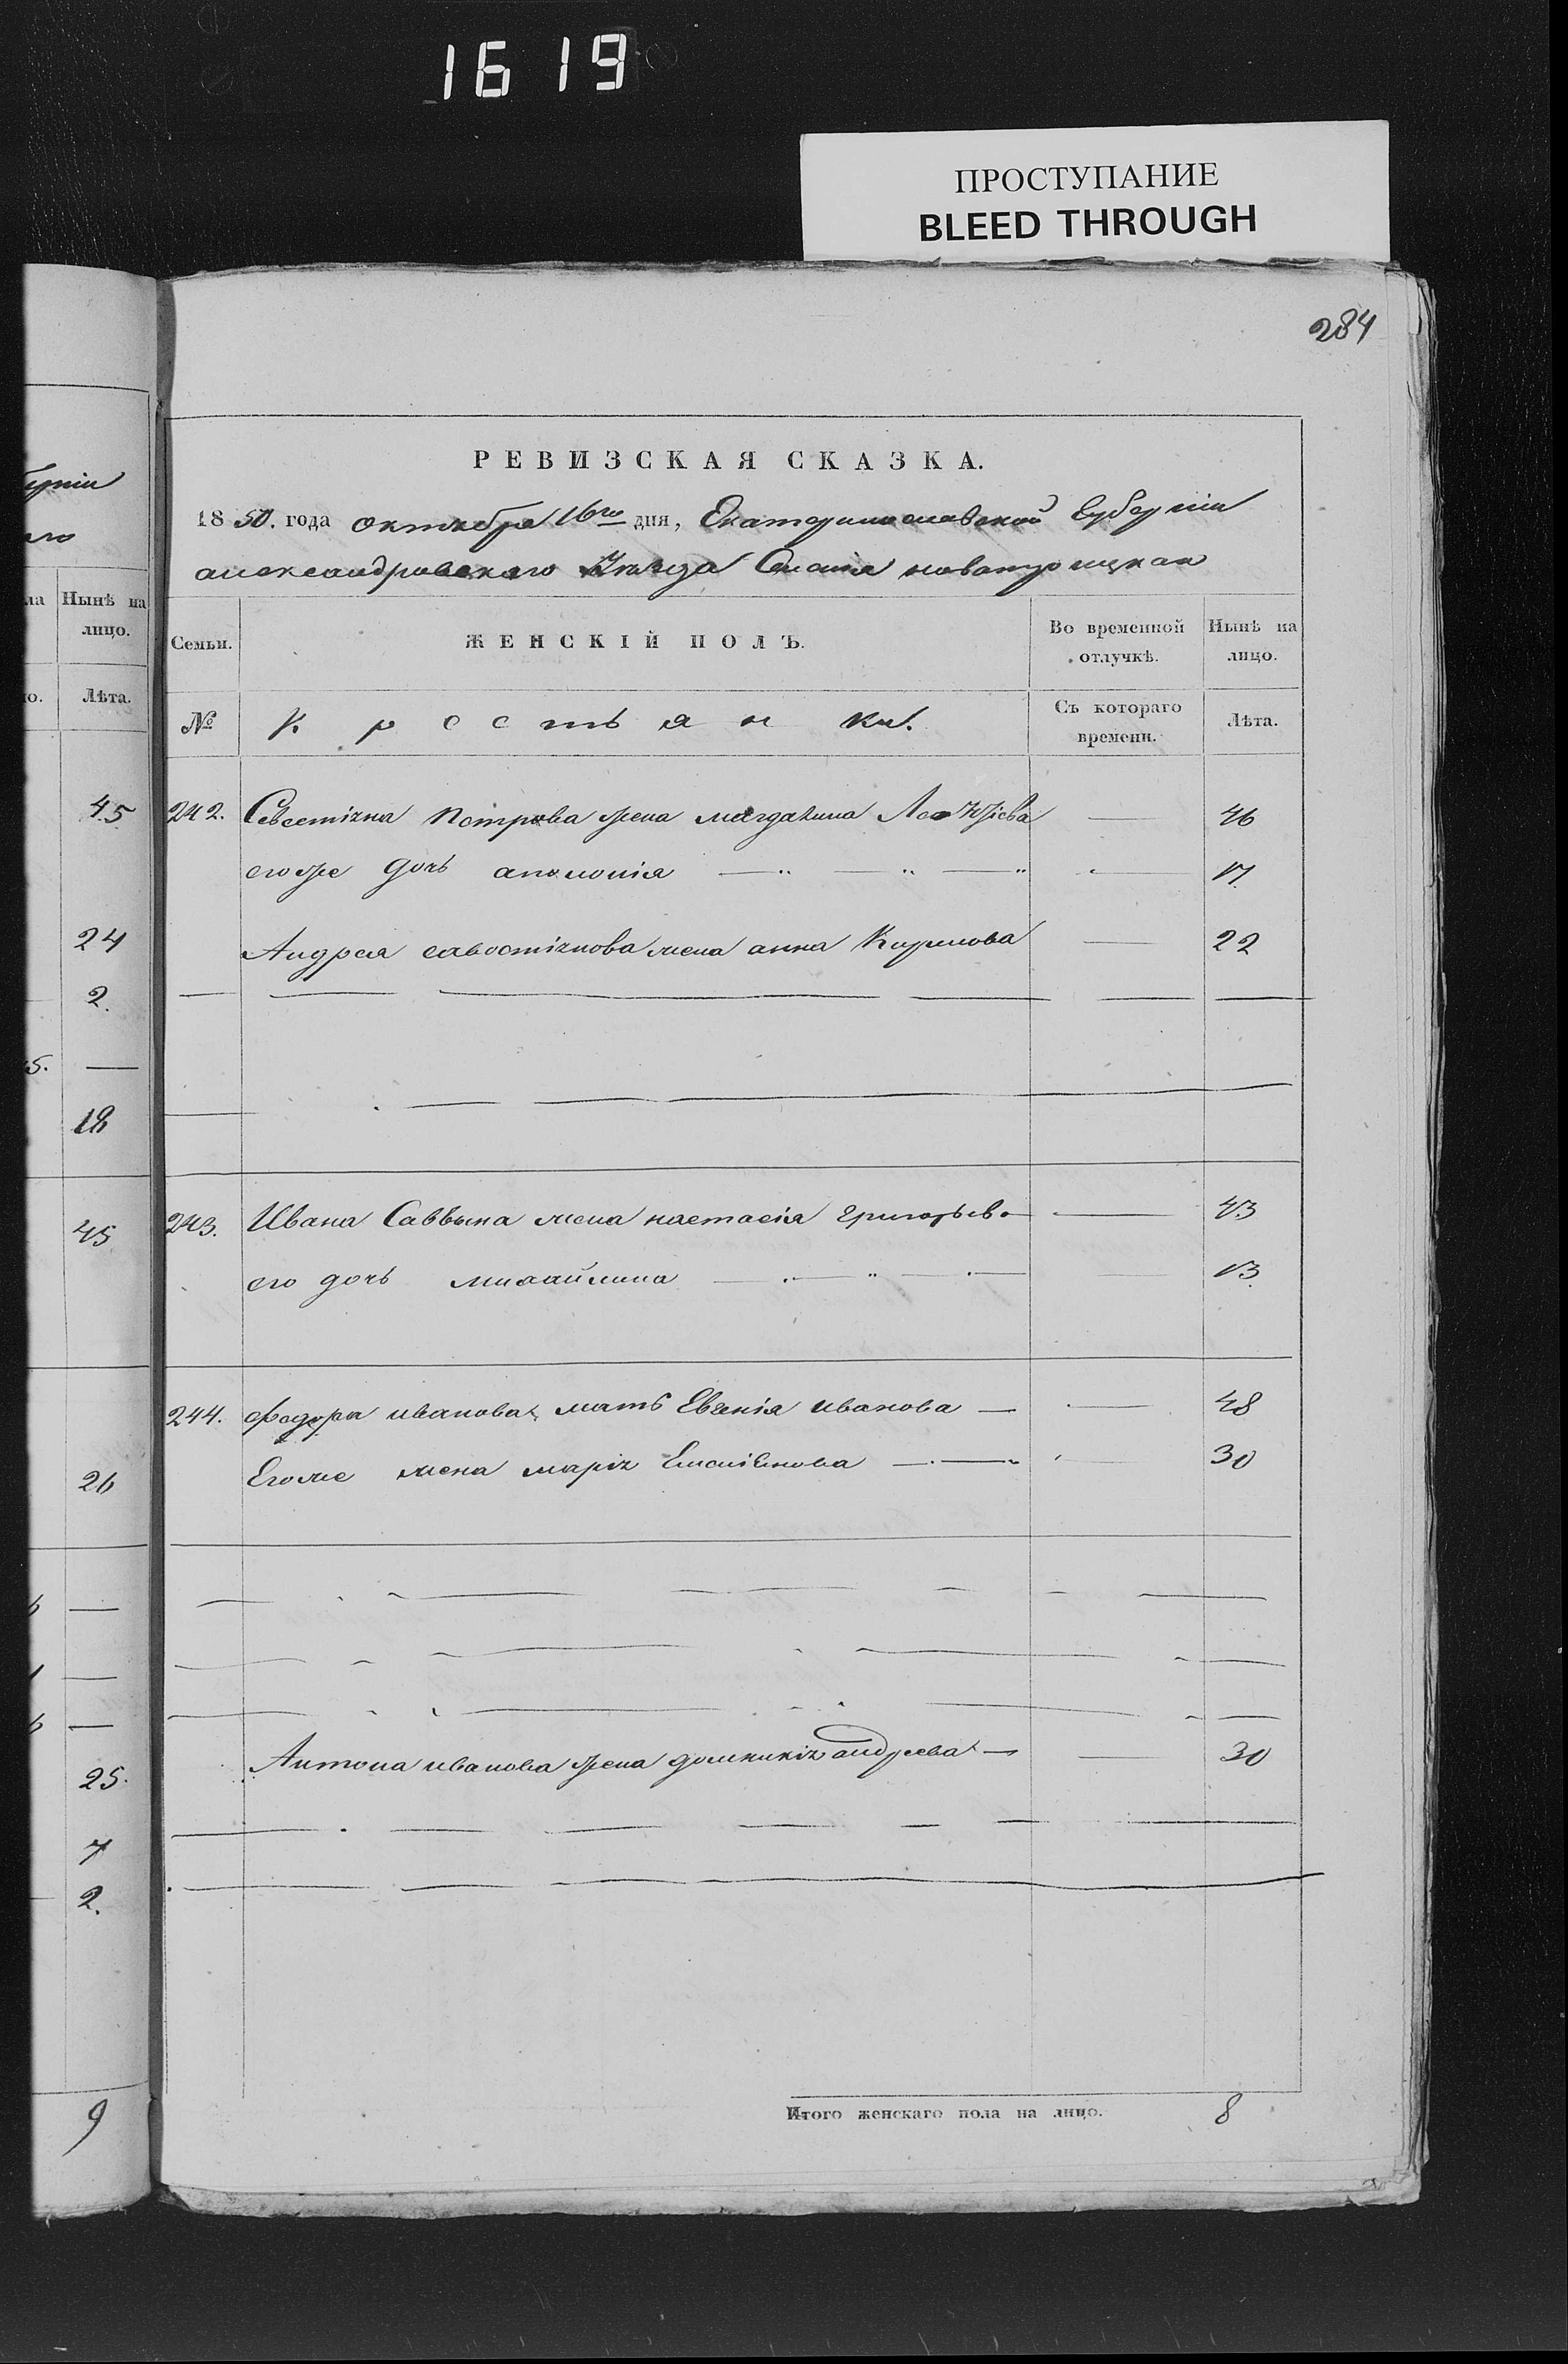 1619
ПРОСТУПАНИЕ
BLEED THROUGH
284
РЕВИЗСКАЯ СКАЗКА.
1850. года октября 16го дня, Екатеринославской Губерніи
александровскаго Уѣзда новотроицкая
Семьи.
ЖЕНСКІЙ ПОЛЪ.
Во временной отлучкѣ.
Нынѣ на лицо.
№
Крестьянки.
Съ котораго времени.
Лѣта.
242. Севестіяна Петрова жена магдалина 46
егоже дочь аполонія — " — " — " — 17
Андрея савостіянова жена анна Кирилова — 22
243. Ивана Саввына жена настасія Григорьева — 43
его дочь михайлина — " — — 13
244. федора иванова мать Евгенія иванова — — 48
Егоже жена марія — — 30
Антона иванова жена домникія андреева — — 30
Итого женскаго пола на лицо. 8
Нынѣ на
лицо.
Лѣта.
45
24
2.
18
45
26
25.
7
2.
9